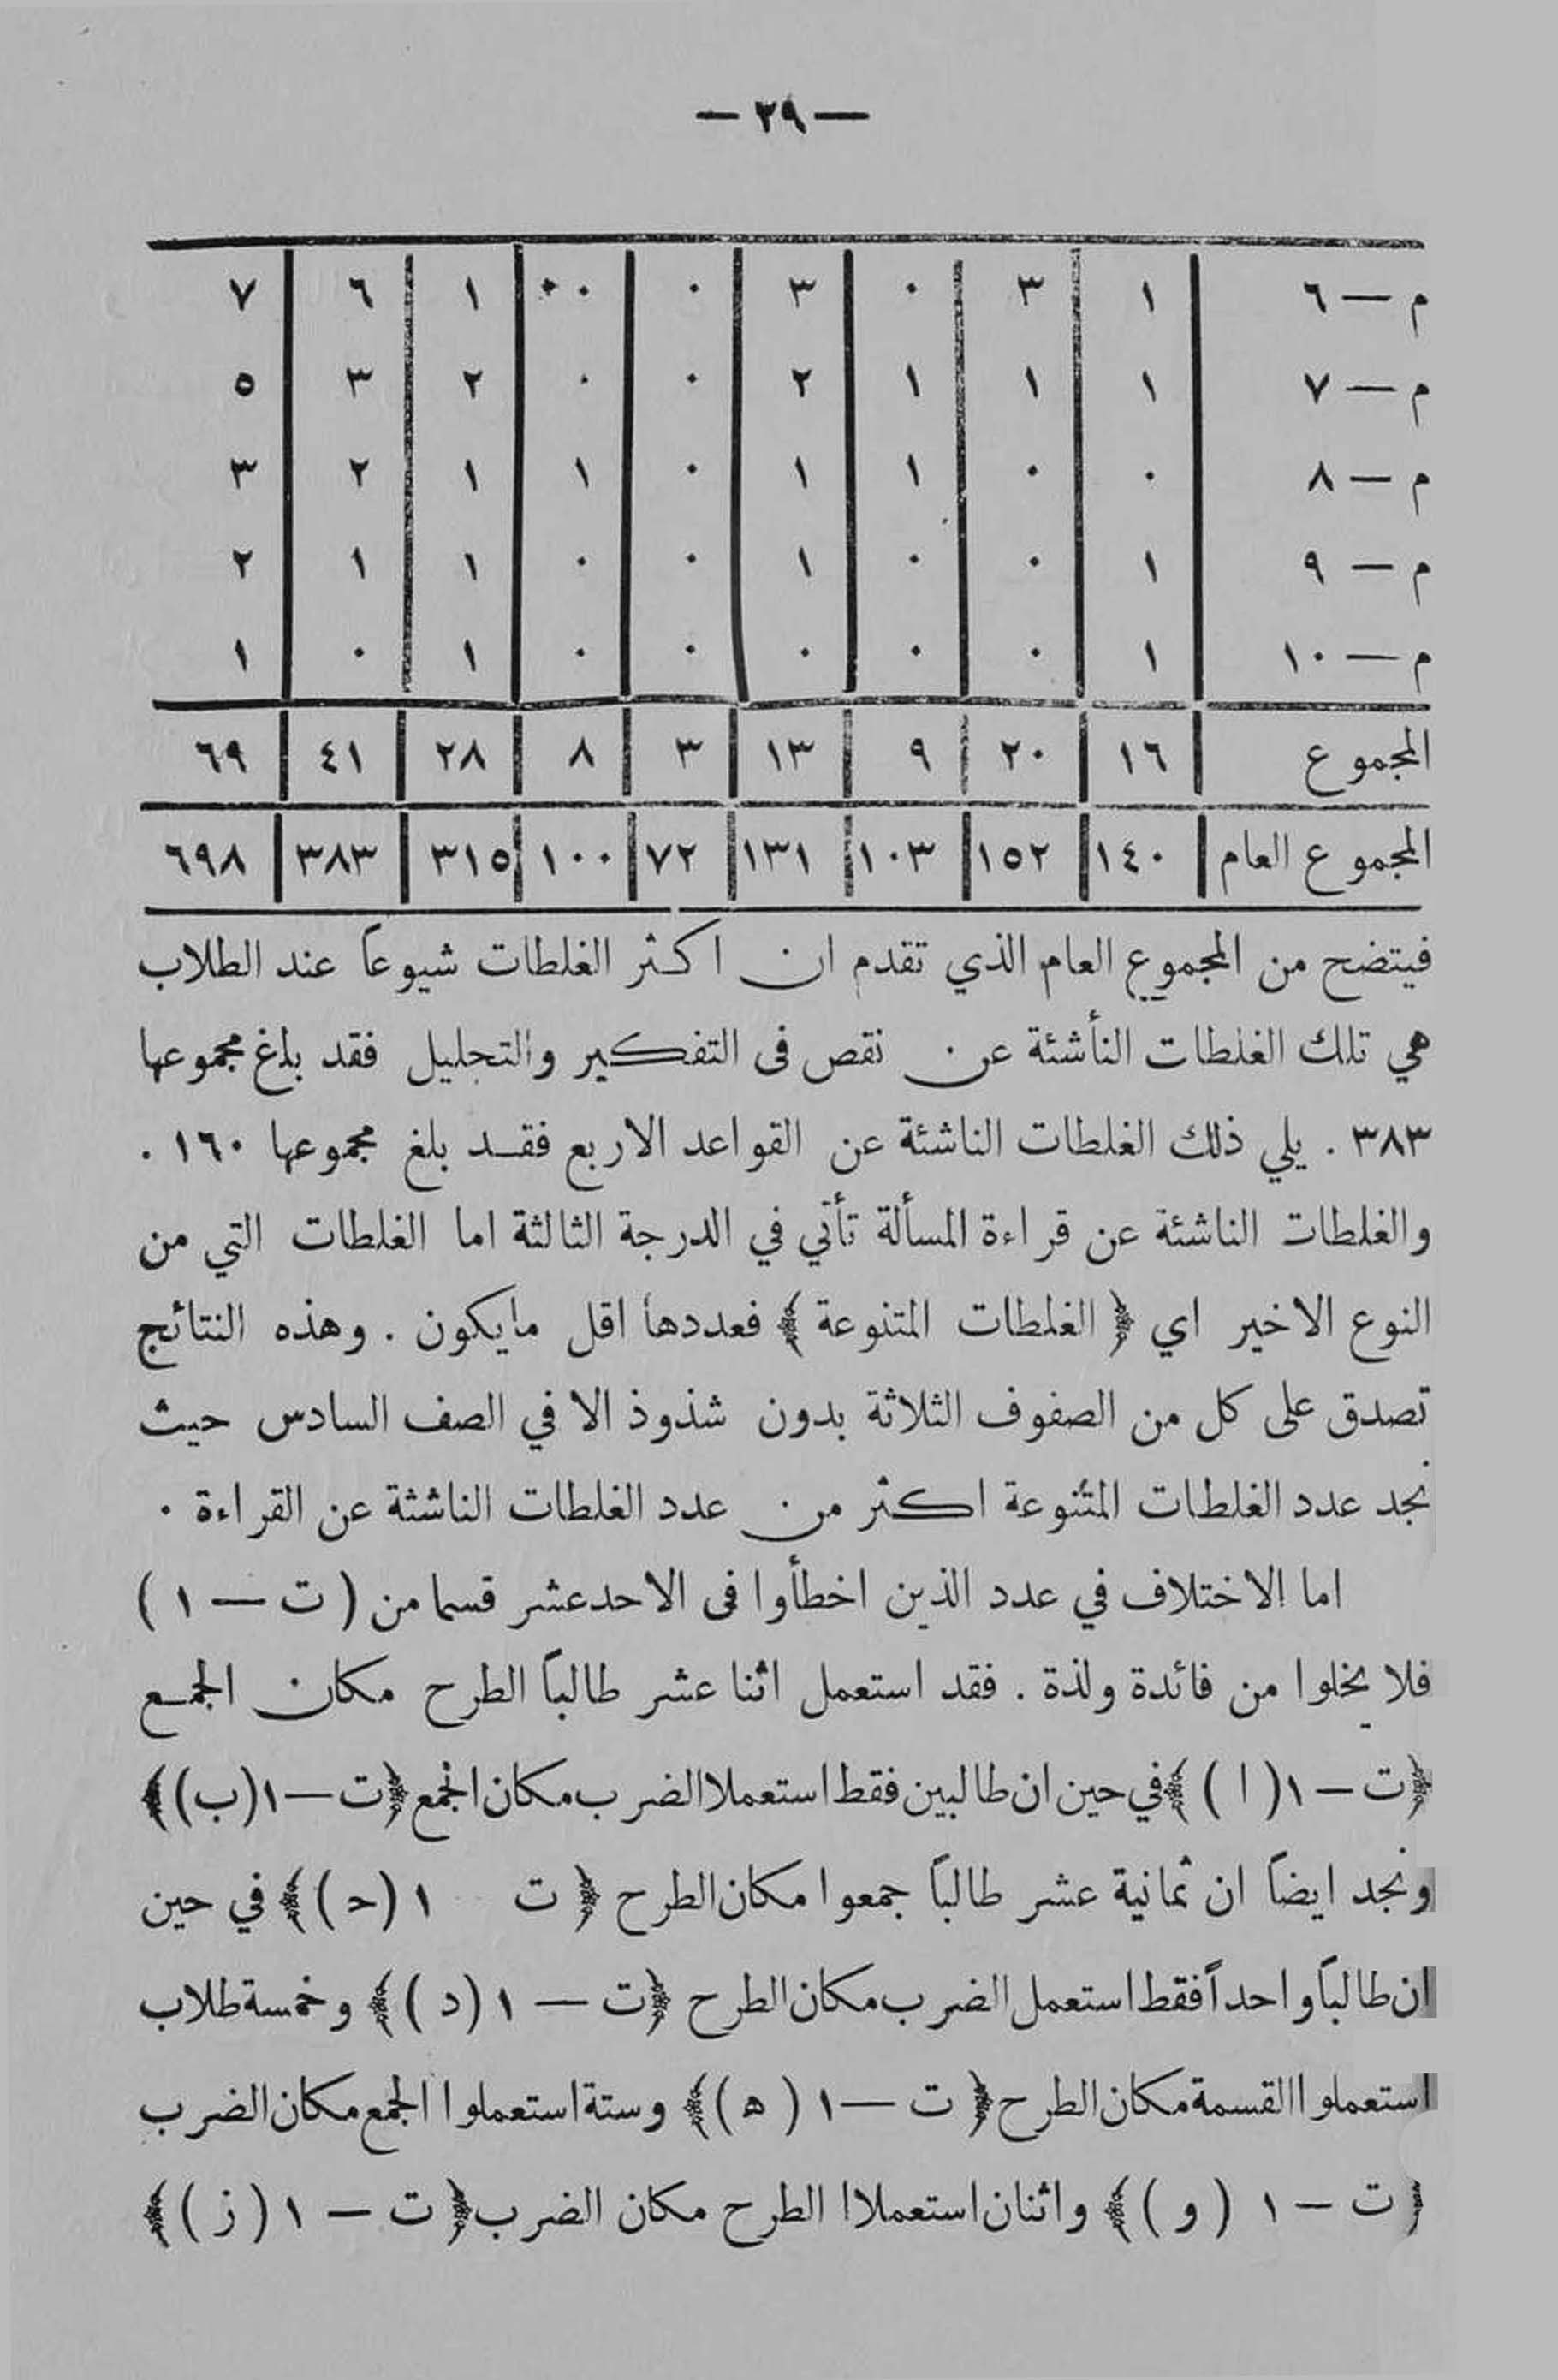 — ٢٩ —
م — ٦ ١ ٣ ٠ ٣ ٠ ٠ ١ ٦ ٧
م — ٧ ١ ١ ١ ٢ ٠ ٠ ٢ ٣ ٥
م — ٨ ٠ ٠ ١ ١ ٠ ١ ١ ٢ ٣
م — ٩ ١ ٠ ٠ ١ ٠ ٠ ١ ١ ٢
م — ١٠ ١ ٠ ٠ ٠ ٠ ٠ ١ ٠ ١
المجموع ١٦ ٢٠ ٩ ١٣ ٣ ٨ ٢٨ ٤١ ٦٩
المجموع العام ١٤٠ ١٥٢ ١٠٣ ١٣١ ٧٢ ١٠٠ ٣١٥ ٣٨٣ ٦٩٨
فيتضح من المجموع العام الذي تقدم ان اكثر الغلطات شيوعاً عند الطلاب
هي تلك الغلطات النأشئة عن نقص فى التفكير والتحليل فقد بلغ مجموعها
٣٨٣ . يلي ذلك الغلطات الناشئة عن القواعد الاربع فقد بلغ مجموعها ١٦٠ .
والغلطات الناشئة عن قراءة المسألة تأتي في الدرجة الثالثة اما الغلطات التي من
النوع الاخير اي ﴿ الغلطات المتنوعة ﴾ فعددها اقل مايكون . وهذه النتائج
تصدق على كل من الصفوف الثلاثة بدون شذوذ الا في الصف السادس حيث
نجد عدد الغلطات المتنوعة اكثر من عدد الغلطات الناشئة عن القراءة .
اما الاختلاف في عدد الذين اخطأوا فى الاحدعشر قسما من ( ت — ١ )
فلا يخلوا من فائدة ولذة . فقد استعمل اثنا عشر طالباً الطرح مكان الجمع
﴿ ت — ١ ( ا ) ﴾ في حين ان طالبين فقط استعملا الضرب مكان الجمع ﴿ ت — ١ (ب) ﴾
ونجد ايضاً ان ثمانية عشر طالباً جمعوا مكان الطرح ﴿ ت ١ (ح) ﴾ في حين
ان طالباً واحداً فقط استعمل الضرب مكان الطرح ﴿ ت — ١ ( د ) ﴾ وخمسة طلاب
استعملوا القسمة مكان الطرح ﴿ ت — ١ ( ه ) ﴾ وستة استعملوا الجمع مكان الضرب
﴿ ت — ١ ( و ) ﴾ واثنان استعملاا الطرح مكان الضرب ﴿ ت — ١ ( ز ) ﴾